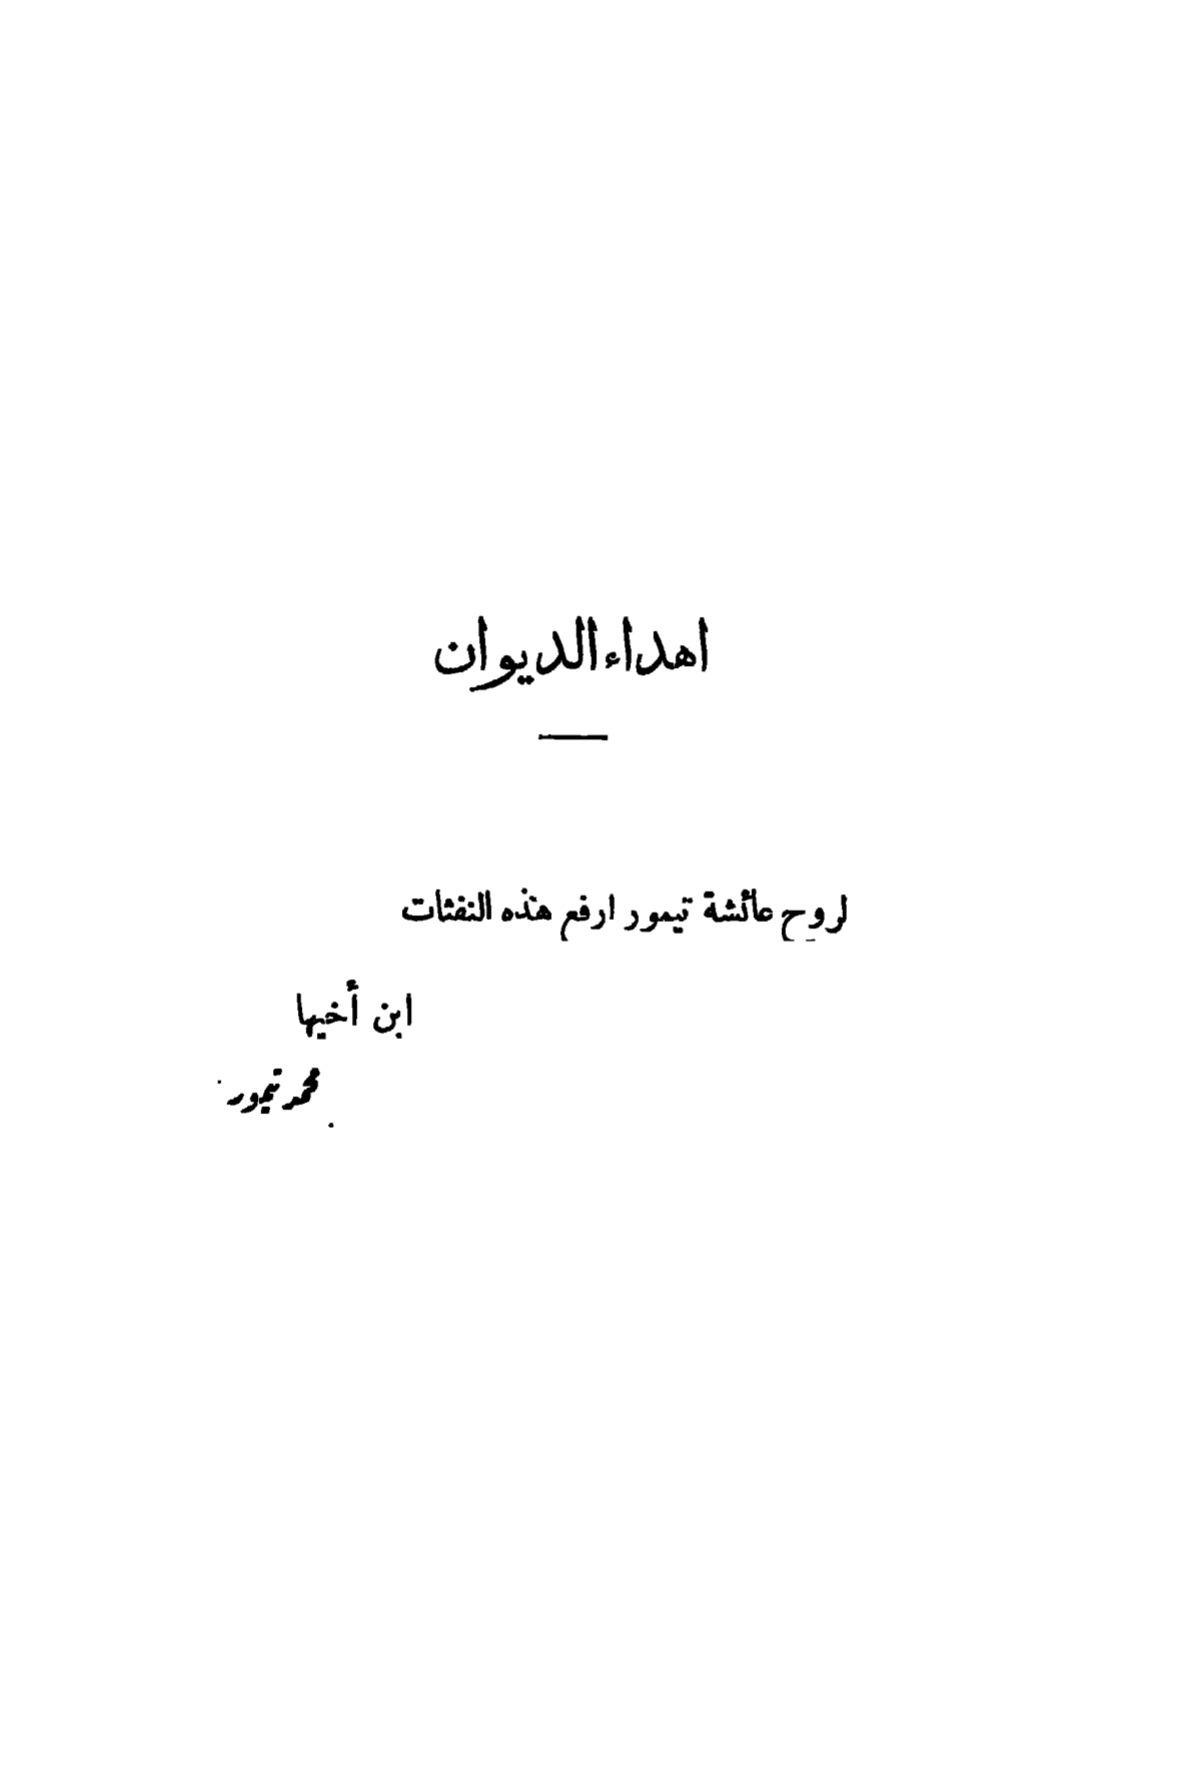 اهداء الديوان
لروح عائشة تيمور ارفع هذه النفثات
ابن أخيها
محمد تيمور